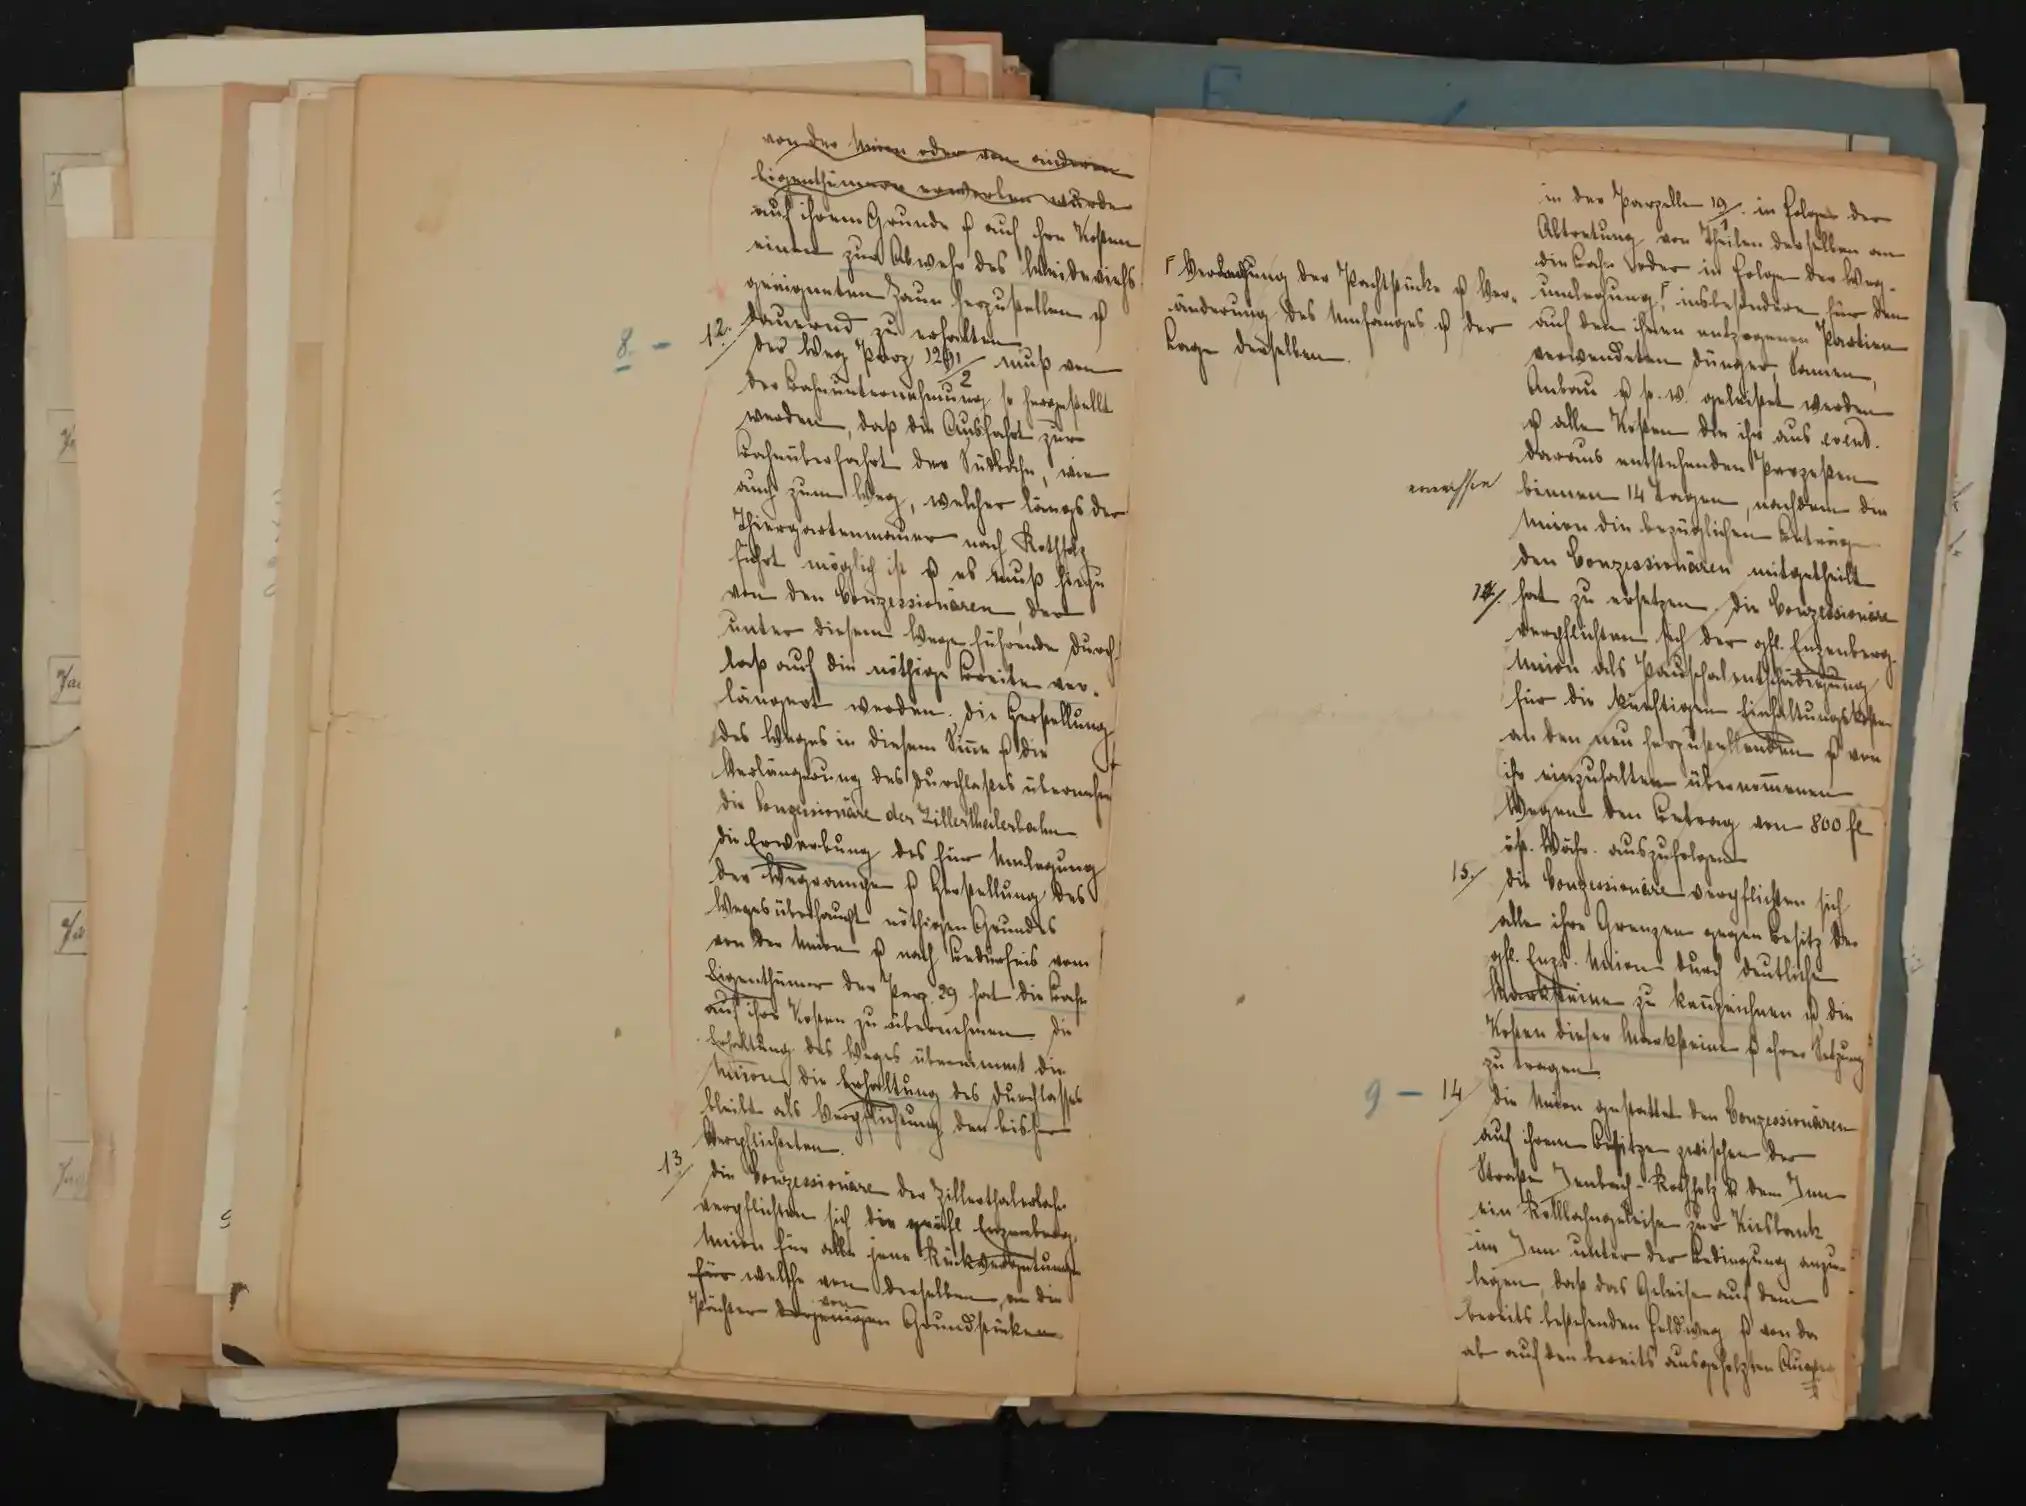 von der Union oder von anderen
Eigenthümern erworben wurde
auf ihrem Grunde & auf ihre Kosten
einen zur Abwehr des Weideviehs
geeigneten Zaun herzustellen &
dauernd zu erhalten
8. –
12./ Der Weg Parz 1291/2 muß von
der Bahnunternehmung so hergestellt
werden, daß die Ausfahrt zur
Bahnüberfahrt der Südbahn, wie
auch zum Weg, welcher längs der
Thiergartenmauer nach Rotholz
führt möglich ist & es muß hiezu
von den Conzessionären der
unter diesem Wege führende Durch-
laß auf die nöthige Breite ver-
längert werden. Die Herstellung
des Weges in diesem Sinne & die
Verlängerung des Durchlaßes übernehmen
die Conzessionäre der Zillerthalerbahn
Die Erwerbung des für Umlegung
der & Herstellung des
Weges überhaupt nöthigen Grundes
von der Union & nach Bedürfnis vom
Eigenthümer der Parz. 29 hat die Bahn
auf ihre Kosten zu übernehmen. Die
Erhaltung des Weges übernimmt die
Union die Erhaltung des Durchlasses
bleibt als Verpflichtung den bisher
Verpflichteten.
13/ Die Conzessionäre der Zillerthalerbahn
verpflichten sich der gräfl Enzenberg.
Union für alle jene Rückvergütungen
für welche von derselben, an die
Pächter derjenigen von Grundstücken
in der Parzelle 19/1. in Folge der
Abtretung von Theilen derselben an
die Bahn oder in Folge der Weg-
umlegung, insbesondere für den
auf den ihnen entzogenen Partien
verwendeten Dünger, Samen,
Anbau u s. w. geleistet werden
& alle Kosten die ihr aus event.
daraus entstehenden Prozeßen
erwachsen
binnen 14 Tagen, nachdem die
Union die bezüglichen Beträge
den Conzessionären mitgetheilt
hat zu ersetzen.
Verödung der Pachtstücke & Ver-
änderung des Umfanges & der
Lage derselben.
14/. Die Conzessionäre
verpflichten sich der gfl. Enzenberg.
Union als Pauschalentschädigung
für die künftigen Einhaltungskosten
an den neu herzustellenden & von
ihr einzuhalten übernommenen
Wegen den Betrag von 800 fl
öst. Währ. auszufolgen
15./ Die Conzessionäre verpflichten sich
alle ihre Grenzen gegen Besitz der
gfl. Enzb. Union durch deutliche
Marksteine zu kennzeichnen & die
Kosten dieser Marksteine & ihrer Setzung
zu tragen.
9 –
14/ Die Union gestattet den Conzessionären
auf ihrem Besitze zwischen der
Straße Jenbach-Rotholz & dem Inn
ein Rollbahngeleise zur Kiesbank
im Inn unter der Bedingung anzu-
legen, daß das Geleise auf dem
bereits bestehenden Feldweg & von da
ab auf den bereits ausgeholzten